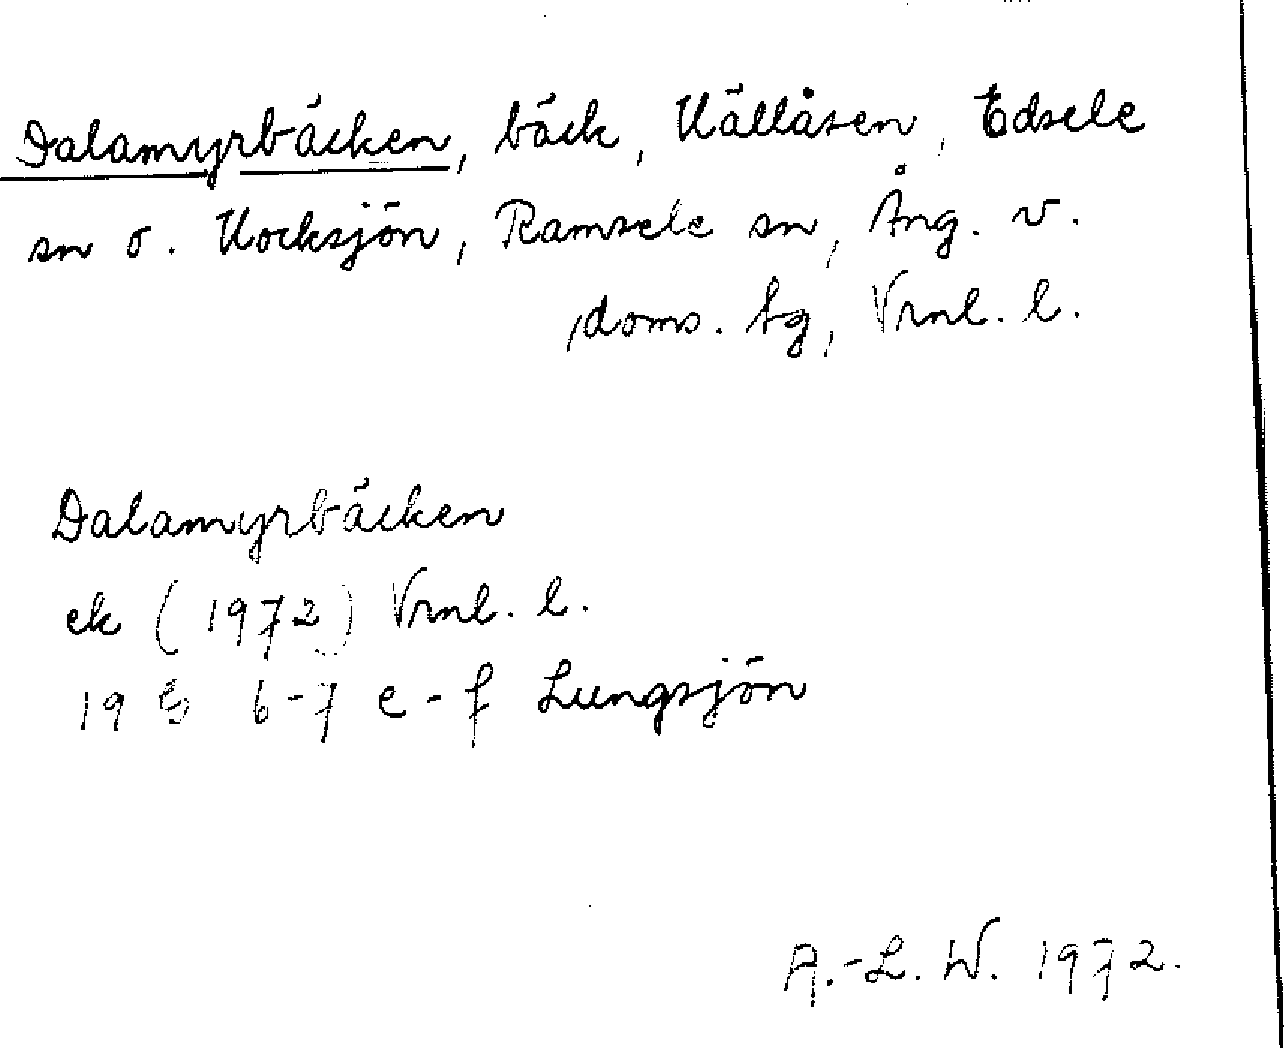 Dalamyrbäcken, bäck, Källåsen, Edsele
sn o. Kocksjön, Ramsele sn, Ång. v.
doms. tg, Vrnl. l.
Dalamyrbäcken
ek (1972) Vrnl. l.
19 G 6-7 e-f Lungsjön
A.-L. W. 1972.